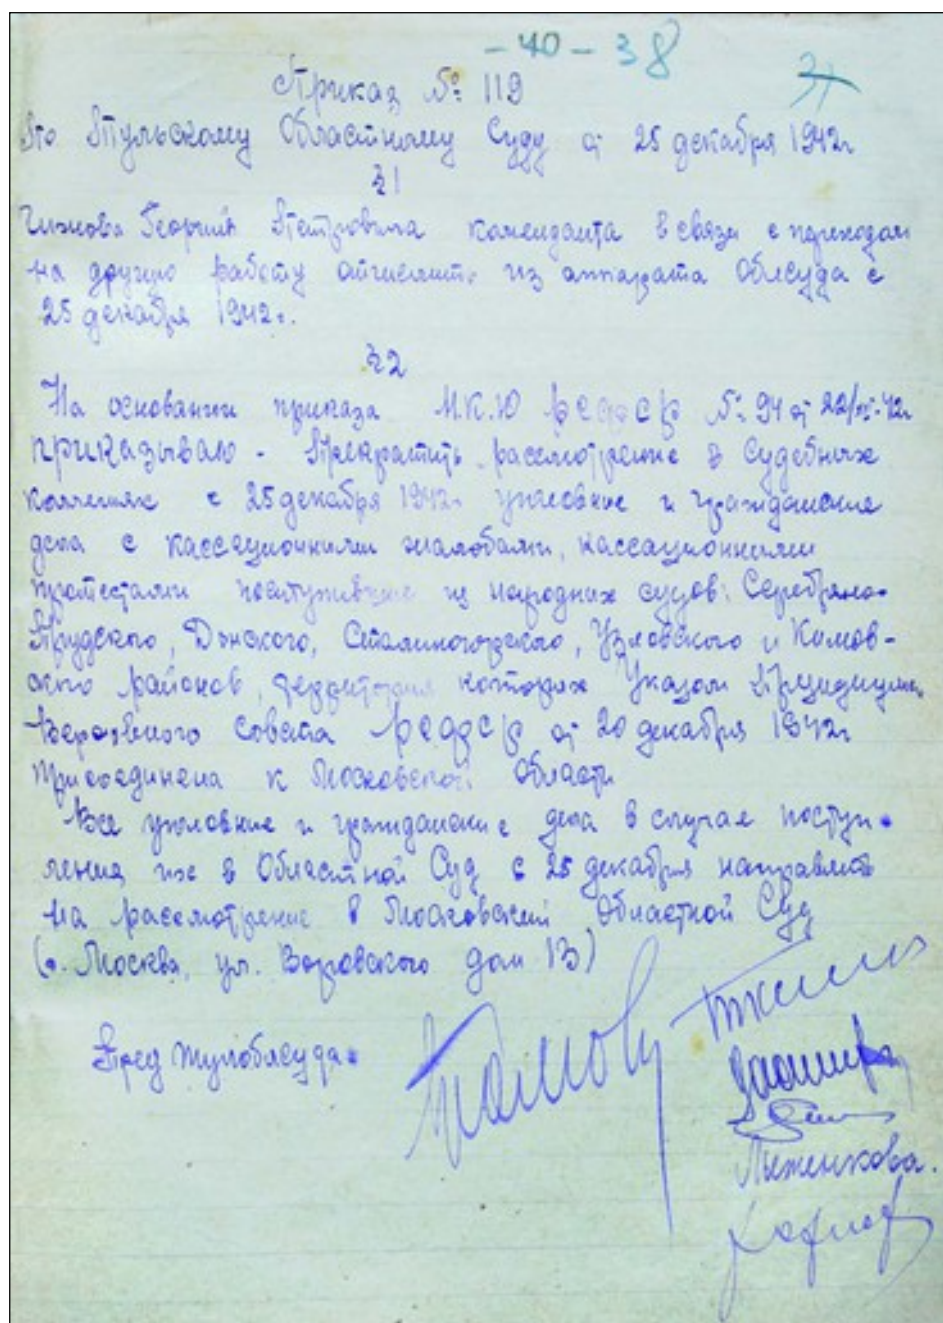 - 40 - 38
31
Приказ № 119
По Тульскому Областному Суду от 25 декабря 1942г
§1
Чижова Георгия Петровича коменданта в связи с переходом
на другую работу отчислить из аппарата Облсуда с
25 декабря 1942г.
§2
На основании приказа Н.К.Ю РСФСР № 94 от 22/XII-42г
приказываю - Прекратить рассмотрение в Судебных
коллегиях с 25 декабря 1942г уголовные и гражданские
дела с кассационными жалобами, кассационными
протестами поступившие из народных судов: Серебряно-
Прудского, Донского, Сталиногорского, Узловского и Кимов-
ского районов, территория которых Указом Президиума
Верховного Совета РСФСР от 20 декабря 1942г
присоединена к Московской Области
Все уголовные и гражданские дела в случае поступ-
ления их в Областной Суд с 25 декабря направлять
на рассмотрение в Московский Областной Суд
(г. Москва, ул. Воровского дом 13)
Пред Тулоблсуда
Лиженкова.